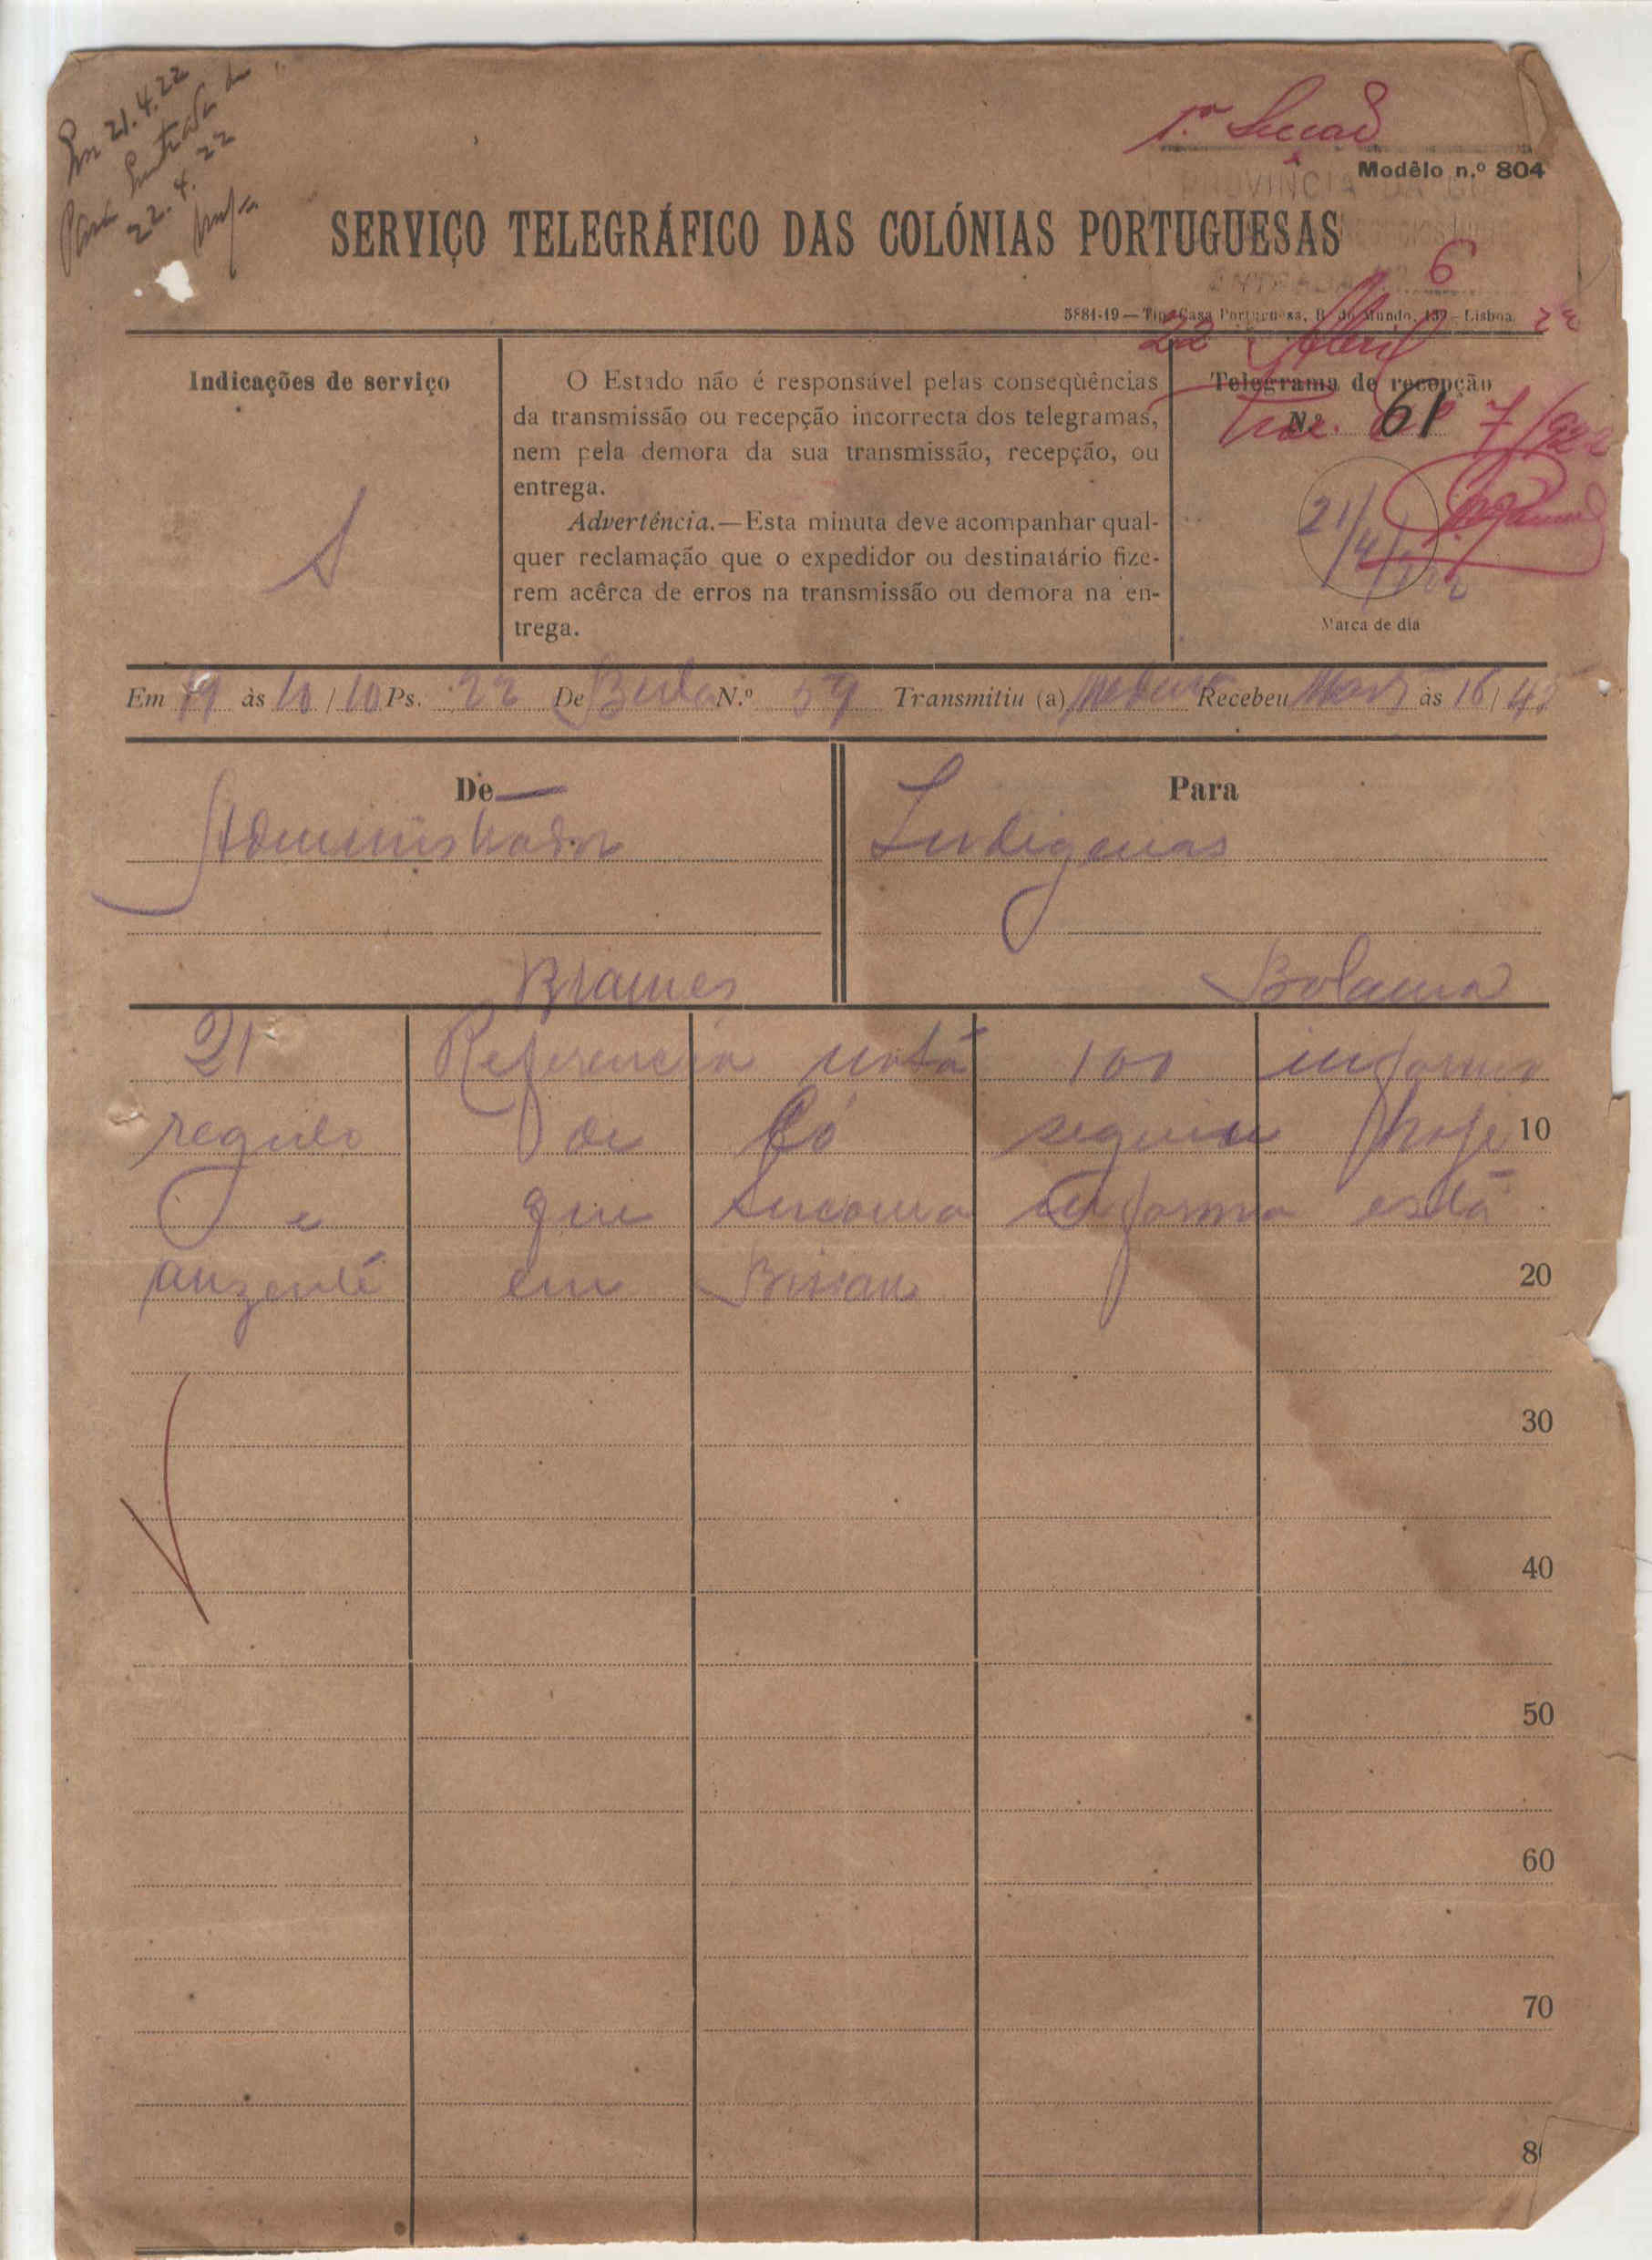 Em 21.4.22
Para Entrada
22.4.22
1.ª Secção
Modêlo n.º 804
PROVINCIA DA GUI
SERVIÇO TELEGRÁFICO DAS COLÓNIAS PORTUGUESAS
ENTRADA N.º 6
5881-19—Tip. Casa Portuguesa, R. do Mundo, 139—Lisboa.
22 Abril 22
Indicações de serviço
S
O Estado não é responsável pelas conseqùências
da transmissão ou recepção incorrecta dos telegramas,
nem pela demora da sua transmissão, recepção, ou
entrega.
Advertência.—Esta minuta deve acompanhar qual-
quer reclamação que o expedidor ou destinatário fize-
rem acêrca de erros na transmissão ou demora na en-
trega.
Telegrama de recepção
N.º 61
7/922
21/4/922
Marca de dia
Em 19 às 10/10 Ps. 22 De Bula N.º 59 Transmitiu (a) Recebeu às 16/42
De
Administrador
Brames
Para
Indigenas
Bolama
21 Referencia nota 100 informo
regulo de Có seguiu hoje 10
e que informa está
auzente em Bissau 20
30
40
50
60
70
8